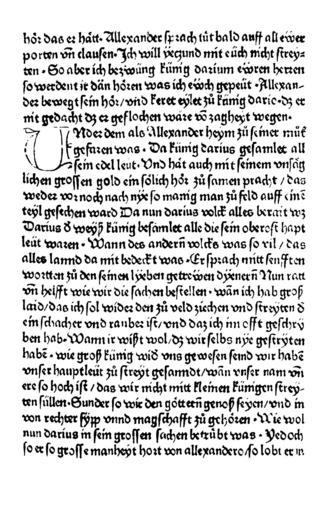 hör das er hått · Allexander sprach tůt bald auff all ewer
porten vñ clausen · Ich will yeczund mit eüch nicht strey-
ten · So aber ich bezwüng künig darium ewren herren
so werdent ir dän hören was ich eüch gepeüt · Allexan-
der bewegt sein hör/vnd keret eylet zů künig dario · dz er
mit gedacht dz er geflochen ware võ zagheyt wegen ·
Under dem als Allexander heym zů seiner můt̃
gefaren was · Da künig darius gesamlet all
sein edel leut · Vnd hät auch mit seinem vnsåg
lichen grossen gold ein sölich hör zů samen pracht / das
weder vor noch nach nye so manig man zů feld auff eine
teyl gesechen ward Da nun darius volck alles berait wz
Darius d̃ weyß künig besamlet alle die sein oberost hapt
leüt waren · Wann des andern volcks was so vil / das
alles lannd da mit bedeckt was · Er sprach mitt senfften
wortten zů den seinen lyeben getrewen dyenern Nun ratt
vñ helfft wie wir die sachen bestellen · wañ ich hab groß
laid/das ich sol wider den zů veld ziechen vnd streytten d̃
ein schacher vnd rauber ist/vnd daz ich im offt geschry
ben hab · Wann ir wißt wol/dz wir selbs nye gestryten
habẽ · wie groß künig wid̃ vns gewesen seind wir habẽ
vnser hauptleüt zů streyt gesanndt/wañ vnser nam vñ
ere so hoch ist / das wir nicht mitt kleinen künigen strey-
ten süllen · Sunder so wir den göttern genoß seyen/vnd in
von rechter sypp vnnd magschafft zů gehören · Wie wol
nun darius in sein grossen sachen betrübt was · Yedoch
so er so grosse manheyt hort von allexandero/so lobt er in